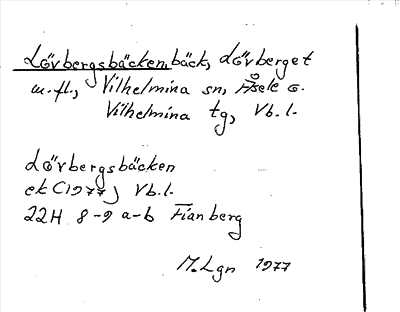 Lövbergsbäcken, bäck, Lövberget
m.fl., Vilhelmina sn, Åsele o.
Vilhelmina tg, Vb.l.
Lövbergsbäcken
ek (1977) Vb.l.
22H 8-9 a-b Fianberg
M.Lgn 1977